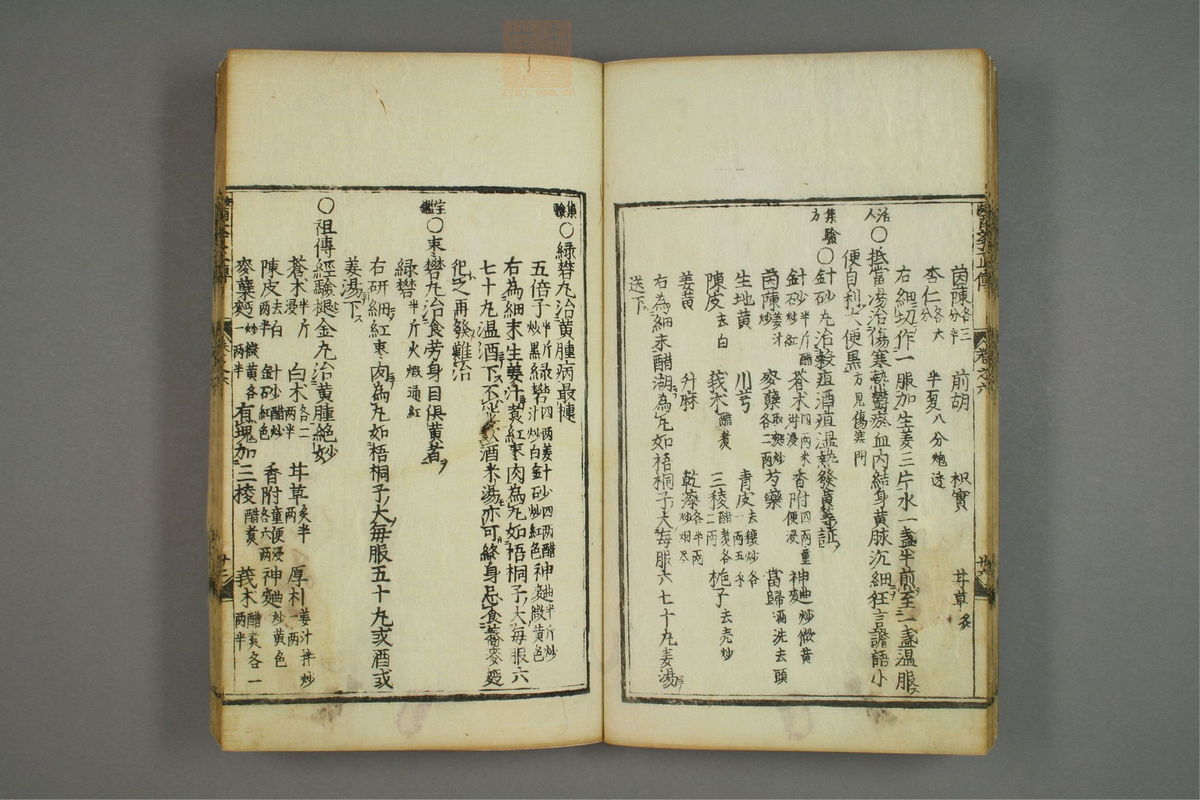 茵蔯各三分半 前胡 枳實 甘草炙
杏仁各六分 半夏八分炮透
右細切作一服加生姜三片水一盞半煎至一盞温服
活人○抵當湯治傷寒熱鬱瘀血内結身黄脉沉細狂言譫語小
便自利大便黒方見傷寒門
集驗方○針砂丸治穀疸酒疸濕熱發黄等証
針砂半斤醋炒紅 蒼术四兩米泔浸 香附四兩童便浸 神麯炒微黄
茵蔯姜汁炒 麥蘖取麺炒各二兩 芍藥 當歸酒洗去頭
生地黄 川芎 青皮去穰炒各一兩五
陳皮去白 莪术醋煮 三稜醋煮各二兩 梔子去壳炒
姜黄 升麻 乾漆炒烟尽各半兩
右為細末醋湖為丸如梧桐子大每服六七十丸姜湯
送下
集驗○緑礬丸治黄腫病最
五倍子半斤炒黒 緑礬四兩姜汁炒白 針砂四兩醋炒紅色 神麯半斤炒微黄色
右為細末生姜汁煮紅棗肉為丸如梧桐子大每服六
七十丸温酒下不飲酒米湯亦可終身忌食蕎麥麪
犯之再發難治
宝鑑○棗礬丸治食劳身目俱黄者
緑礬半斤火煅通紅
右研細紅棗肉為丸如梧桐子大毎服五十丸或酒或
姜湯下
○祖傳經驗褪金丸治黄腫絶妙
蒼术半斤浸 白术各二兩半 甘草炙半兩 厚朴姜汁拌炒一兩
陳皮去白兩半 針砂醋炒紅色 香附童便浸各六兩 神麯炒黄色
麥蘖麪炒微黄各一兩半 有塊加三棱醋煮 莪术醋煮各一兩半